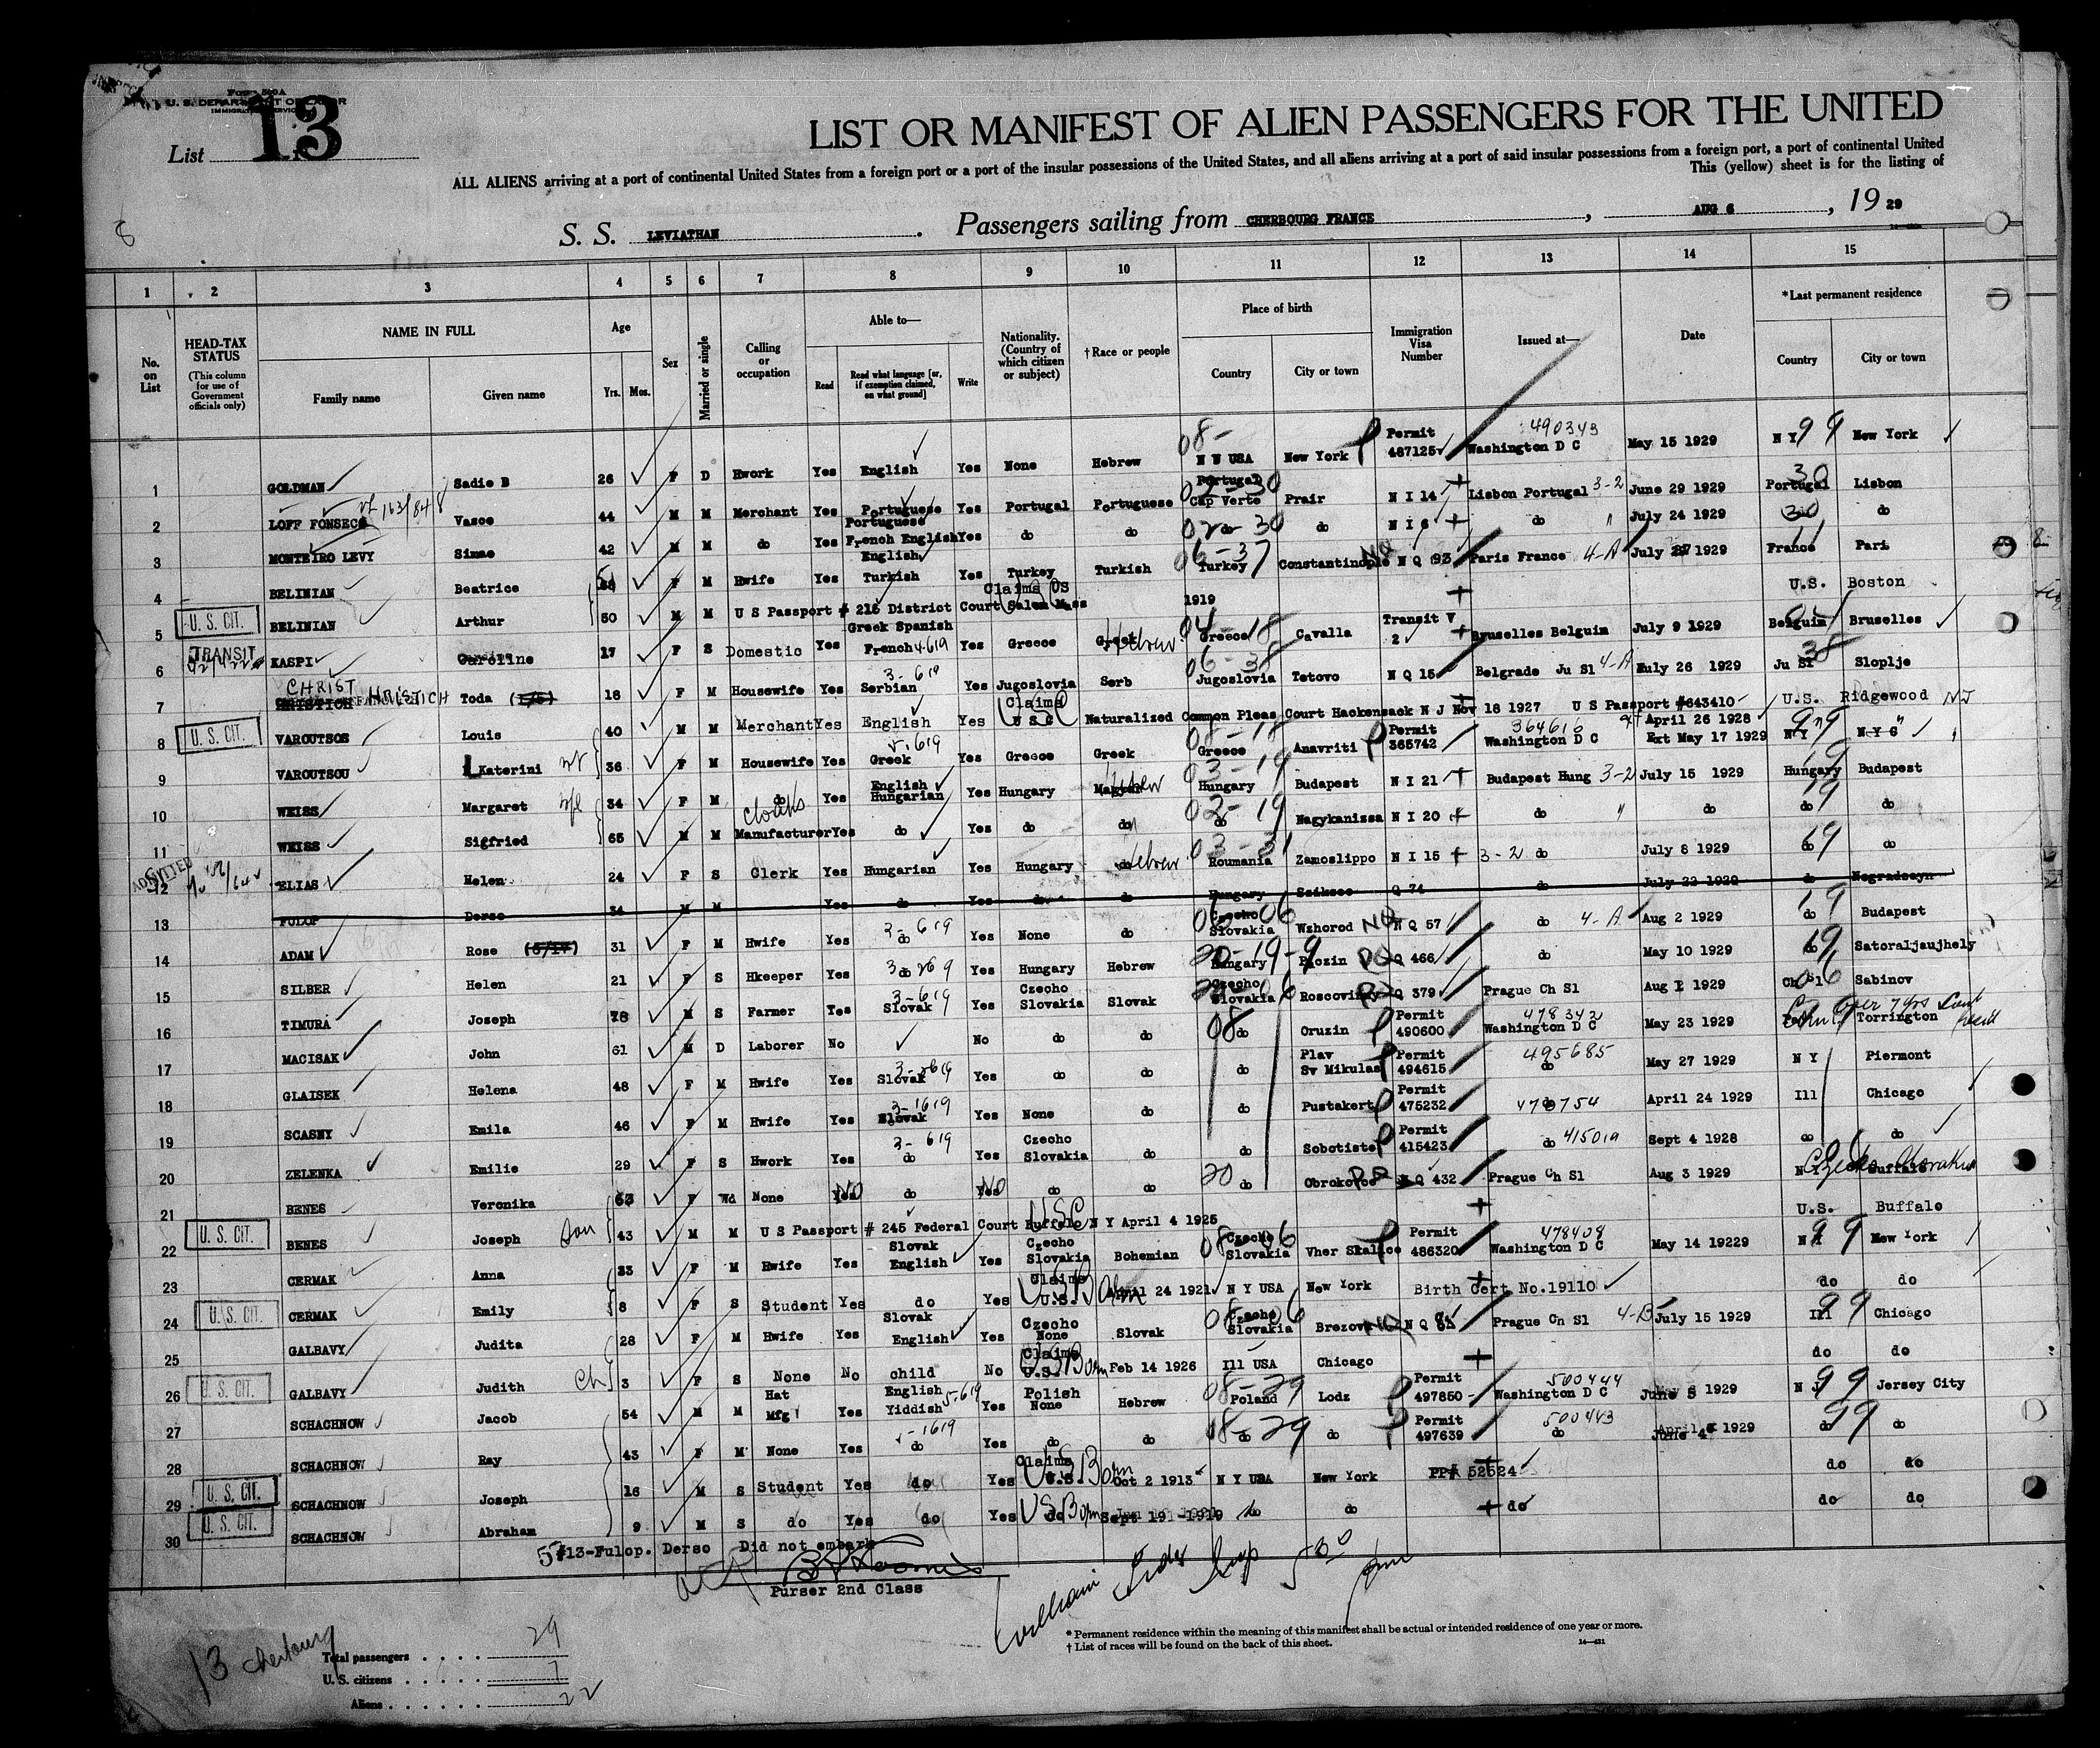 Form 500A
U. S. DEPARTMENT OF LABOR
IMMIGRATION SERVICE
List 13
LIST OR MANIFEST OF ALIEN PASSENGERS FOR THE UNITED
ALL ALIENS arriving at a port of continental United States from a foreign port or a port of the insular possessions of the United States, and all aliens arriving at a port of said insular possessions from a foreign port, a port of continental United
This (yellow) sheet is for the listing of
8
S. S. LEVIATHAN . Passengers sailing from CHERBOURG FRANCE , AUG 6 , 19 29
1 2 3 4 5 6 7 8 9 10 11 12 13 14 15
No. on List
HEAD-TAX STATUS (This column for use of Government officials only)
NAME IN FULL Family name Given name
Age Yrs. Mos.
Sex
Married or single
Calling or occupation
Able to— Read Read what language [or, if exemption claimed, on what ground] Write
Nationality. (Country of which citizen or subject)
†Race or people
Place of birth Country City or town
Immigration Visa Number
Issued at—
Date
*Last permanent residence Country City or town
1 GOLDMAN Sadie B 26 F D Hwork Yes English Yes None Hebrew 08- N Y USA New York Permit 487125 490343 Washington D C May 15 1929 N Y 99 New York
2 LOFF FONSECA Vasco 44 M M Merchant Yes Portuguese Yes Portugal Portuguese Portugal 02-30 Cap Verte Prair N I 14 Lisbon Portugal 3-2 June 29 1929 Portugal 30 Lisbon
3 MONTEIRO LEVY Simao 42 M M do Yes Portuguese French English Yes do do 02-30 do do N I 6 do " July 24 1929 30 do
4 BELINIAN Beatrice F M Hwife Yes English Turkish Yes Turkey Turkish 06-37 Turkey Constantinople NQ N Q 93 Paris France 4-A July 27 1929 France 11 Pari
5 U. S. CIT. BELINIAN Arthur 50 M M U S Passport # 215 District Court Salem Mass Claims US 1919 U.S. Boston
6 TRANSIT KASPI Caroline 17 F S Domestic Yes Greek Spanish French 4-619 Yes Greece Greek Hebrew 04-18 Greece Cavalla Transit V 2 Bruselles Belguim July 9 1929 Belguim Bruselles
7 CHRIST HRISTICH HRISTICH Toda 18 F M Housewife Yes 3-619 Serbian Yes Jugoslovia Serb 06-38 Jugoslovia Tetovo N Q 15 Belgrade Ju Sl 4-A July 26 1929 Ju Sl 38 Sloplje
8 U. S. CIT. VAROUTSOS Louis 40 M M Merchant Yes English Yes Claims U S C Naturalized Common Pleas Court Hackensack N J Nov 18 1927 U S Passport #643410 U.S. Ridgewood NJ
9 VAROUTSOU Katerini wf 36 F M Housewife Yes 5-619 Greek Yes Greece Greek 08-18 Greece Anavriti Permit 365742 364616 Washington D C April 26 1928 Ext May 17 1929 N Y 99 N Y C
10 WEISS Margaret wf 34 F M do Yes English Hungarian Yes Hungary Magyar Hebrew 03-19 Hungary Budapest N I 21 Budapest Hung 3-2 July 15 1929 Hungary 19 Budapest
11 WEISS Sigfried 65 M M cloaks Manufacturer Yes do Yes do do 02-19 do Nagykanizsa N I 20 do " do do 19 do
12 ADMITTED ELIAS Helen 24 F S Clerk Yes Hungarian Yes Hungary do Hebrew 03-31 Roumania Zamoslippo N I 15 3-2 do July 8 1929 do 19 do
13 FULOP Derso 34 M M Yes do Yes do do Hungary Sziksco Q 74 do July 22 1929 do Negradseyn
14 ADAM Rose 31 F M Hwife Yes 3-619 do Yes None do 06-06 Czecho Slovakia Wzhorod NQ N Q 57 do 4-A Aug 2 1929 do 19 Budapest
15 SILBER Helen 21 F S Hkeeper Yes do Yes Hungary Hebrew 20-19-9 Hungary Q 466 do May 10 1929 do 19 Satoraljaujhely
16 TIMURA Joseph 78 M S Farmer Yes 3-619 Slovak Yes Czecho Slovakia Slovak Czecho Slovakia Q 379 Prague Ch Sl Aug 1 1929 Ch Sl 06 Sabinov
17 MACISAK John 61 M D Laborer No No do do 08 do Oruzin Permit 490600 478342 Washington D C May 23 1929 Torrington
18 GLAISEK Helena 48 F M Hwife Yes 3-619 Slovak Yes do do do Plav Sv Mikulas Permit 494615 495685 do May 27 1929 N Y Piermont
19 SCASNY Emila 46 F M Hwife Yes 3-1619 Slovak Yes None do do Pustakert Permit 475232 do April 24 1929 Ill Chicago
20 ZELENKA Emilie 29 F S Hwork Yes 3-619 do Yes Czecho Slovakia do do Sobotiste Permit 415423 do 415019 Sept 4 1928 do do
21 BENES Veronika 63 F Wd None Yes NO do Yes NO do do 20 do N Q 432 Prague Ch Sl Aug 3 1929 Czecho Slovakia Buffalo
22 U. S. CIT. BENES Joseph Son 43 M M U S Passport # 245 Federal Court Buffalo N Y April 4 1925 USC U.S. Buffalo
23 CERMAK Anna 33 F M Hwife Yes Slovak English Yes Czecho Slovakia Bohemian 08-06 Czecho Slovakia Vher Skalice Permit 486320 478408 Washington D C May 14 19229 N Y 99 New York
24 U. S. CIT. CERMAK Emily 8 F S Student Yes do Yes Claims U.S. US Born April 24 1921 N Y USA New York Birth Cert No.19110 do do
25 GALBAVY Judita 28 F M Hwife Yes Slovak English Yes Czecho None Slovak 08-06 Czecho Slovakia Brezova NQ N Q Prague Ch Sl 4-B July 15 1929 Ill 99 Chicago
26 U. S. CIT. GALBAVY Judith Ch 3 F S None No child No Claims U.S. US Born Feb 14 1926 Ill USA Chicago do do
27 SCHACHNOW Jacob 54 M M Hat Mfg Yes English Yiddish 5-619 Yes Polish None Hebrew 08-29 Poland Lodz Permit 497850 500444 Washington D C June 5 1929 N J 99 Jersey City
28 SCHACHNOW Ray 43 F M None Yes do Yes do do 08-29 do do Permit 497639 500443 do June 4 1929 do 99 do
29 U. S. CIT. SCHACHNOW Joseph 16 M S Student Yes do Yes Claims U.S. US Born Oct 2 1913 N Y USA New York PP# 52524 do do
30 U. S. CIT. SCHACHNOW Abraham 9 M S do Yes do Yes do US Born Sept 19 -1919 do do do do do
#13-Fulop. Derso Did not embark
Purser 2nd Class
13 Cherbourg
Total passengers . . . . 29
U. S. citizens . . . . . 7
Aliens . . . . . . 22
* Permanent residence within the meaning of this manifest shall be actual or intended residence of one year or more.
† List of races will be found on the back of this sheet.